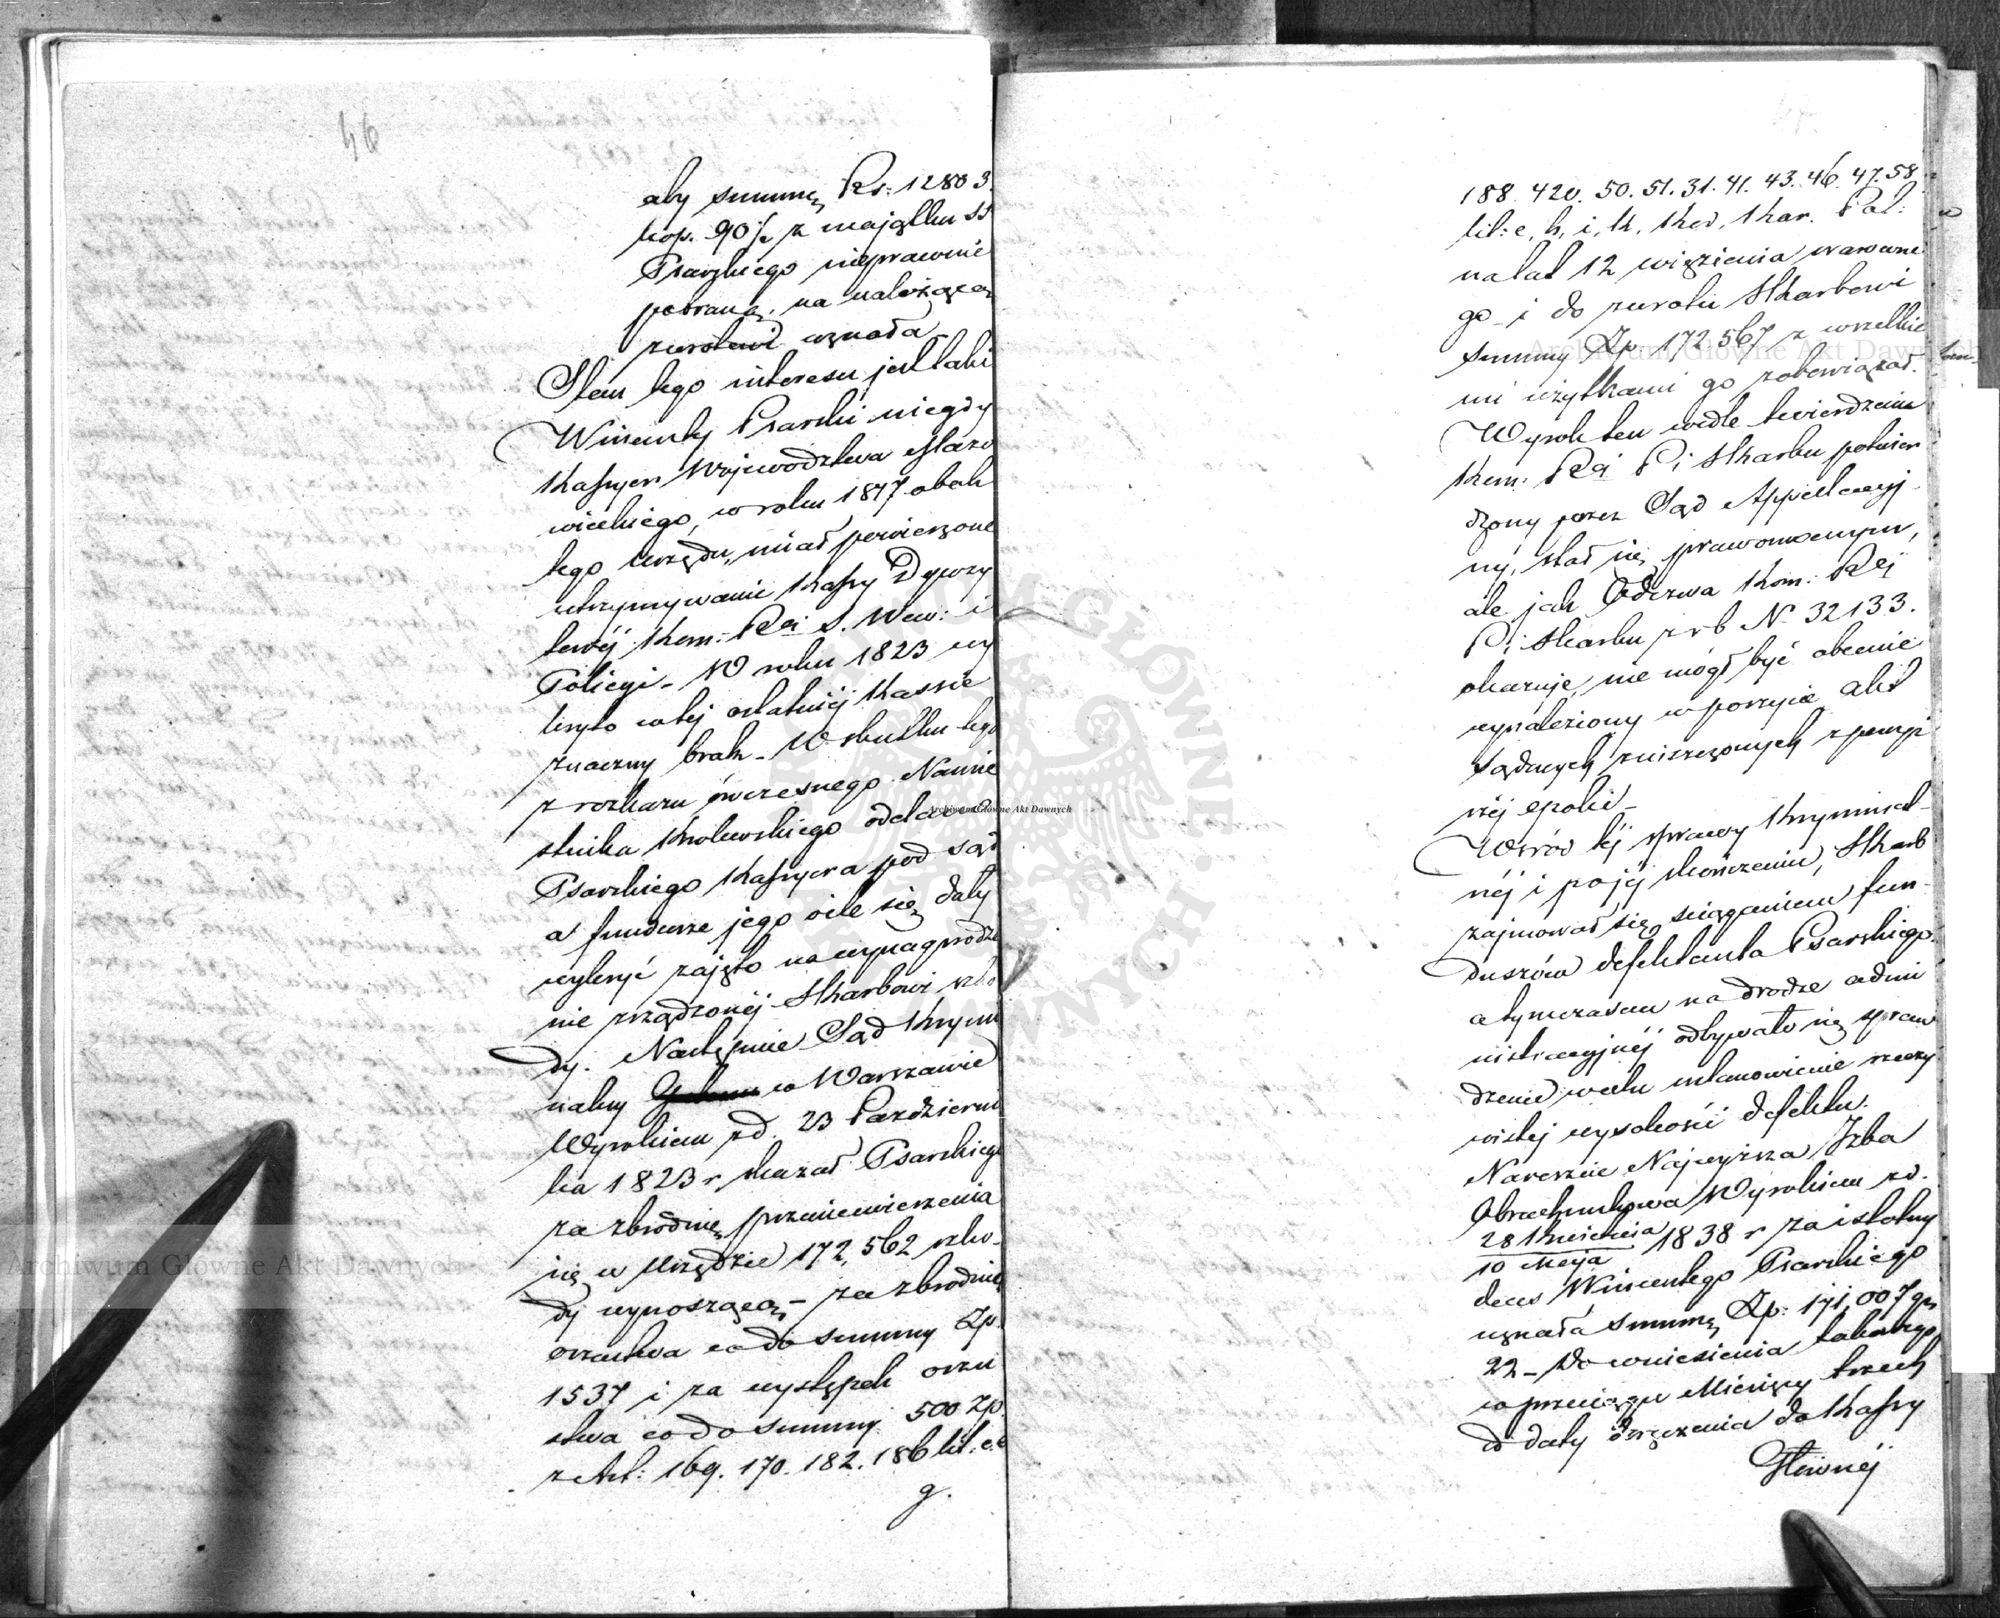 46
aby summę Rs: 12803.
kop. 90½ z majątku SS
Psarskiego nieprawnie
pobraną, na należącą
zwrotowi uznała
Stan tego interesu jest taki
Wincenty Psarski niegdy
Kassyer Województwa Mazo
wieckiego, w roku 1817 obok
tego urzędu, miał powierzone
utrzymywanie Kassy Dywizy
Kom: Rej S. Wew: i
Policyi - W roku 1823 wy
kryto w tej ostatniéj Kassie
znaczny brak - W skutku tego
z rozkazu ówczesnego Namie
stnika Królewskiego oddano
Psarskiego Kassyera pod sąd
a fundusze jego o ile się dały
wykryć zajęto na wynagrodze
nie zrządzonéj Skarbowi szko
dy. Następnie Sąd Krymi
nalny w Warszawie
Wyrokiem z d. 23 Październi
ka 1823 r skazał Psarskiego
za zbrodnię przeniewierzenia
się w Urzędzie 172,562 szko-
dy wynoszącą - za zbrodnię
oszustwa co do summy Zp.
1537 i za występek oszu
stwa co do summy 500 Zp.
z Art: 169. 170. 182. 186 lit: c. e
g.
188. 420. 50. 51. 31. 41. 43. 46. 47. 58.
lit: e, h, i, k, Kod, Kar. Pol:
na lat 12 więzienia warowne
go - i do zwrotu Skarbowi
summy Zp. 172,567 z wszelkie
mi użytkami go zobowiązał.
Wyrok ten wedle twierdzenia
Kom: Rej P. i Skarbu potwier
dzony przez Sąd Appellacyj
ny, stał się prawomocnym,
ale jak Odezwa Kom: Rej
P. i Skarbu z r b N 32133.
okazuje, nie mógł być obecnie
wynaleziony w poszycie akt
sądowych zniszczonych z
széj epoki -
Wśród téj sprawy Kryminal-
néj i po jéj skończeniu, Skarb
zajmował się ściąganiem fun-
duszów defektanta Psarskiego
a tymczasem na drodze admi
nistracyjnéj odbywało się spraw
dzenie, w celu ustanowienia rzeczy
wistej wysokości defektu.
Nareszcie Najwyższa Izba
Obrachunkowa Wyrokiem z d.
28 Kwietnia
10 Maja 1838 r za istotny
deces Wincentego Psarskiego
uznała summę Zp: 171,007 gr
22 - do wniesienia takowego
w przeciągu Miesięcy trzech
od daty doręczenia do Kassy
Głównéj
Archiwum Główne Akt Dawnych
Archiwum Główne Akt Dawnych
Archiwum Główne Akt Dawnych
ARCHIWUM GŁÓWNE AKT DAWNYCH